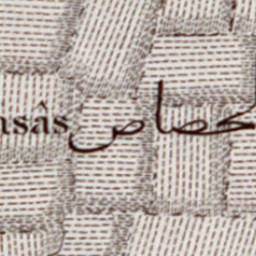 sâs لخصاص